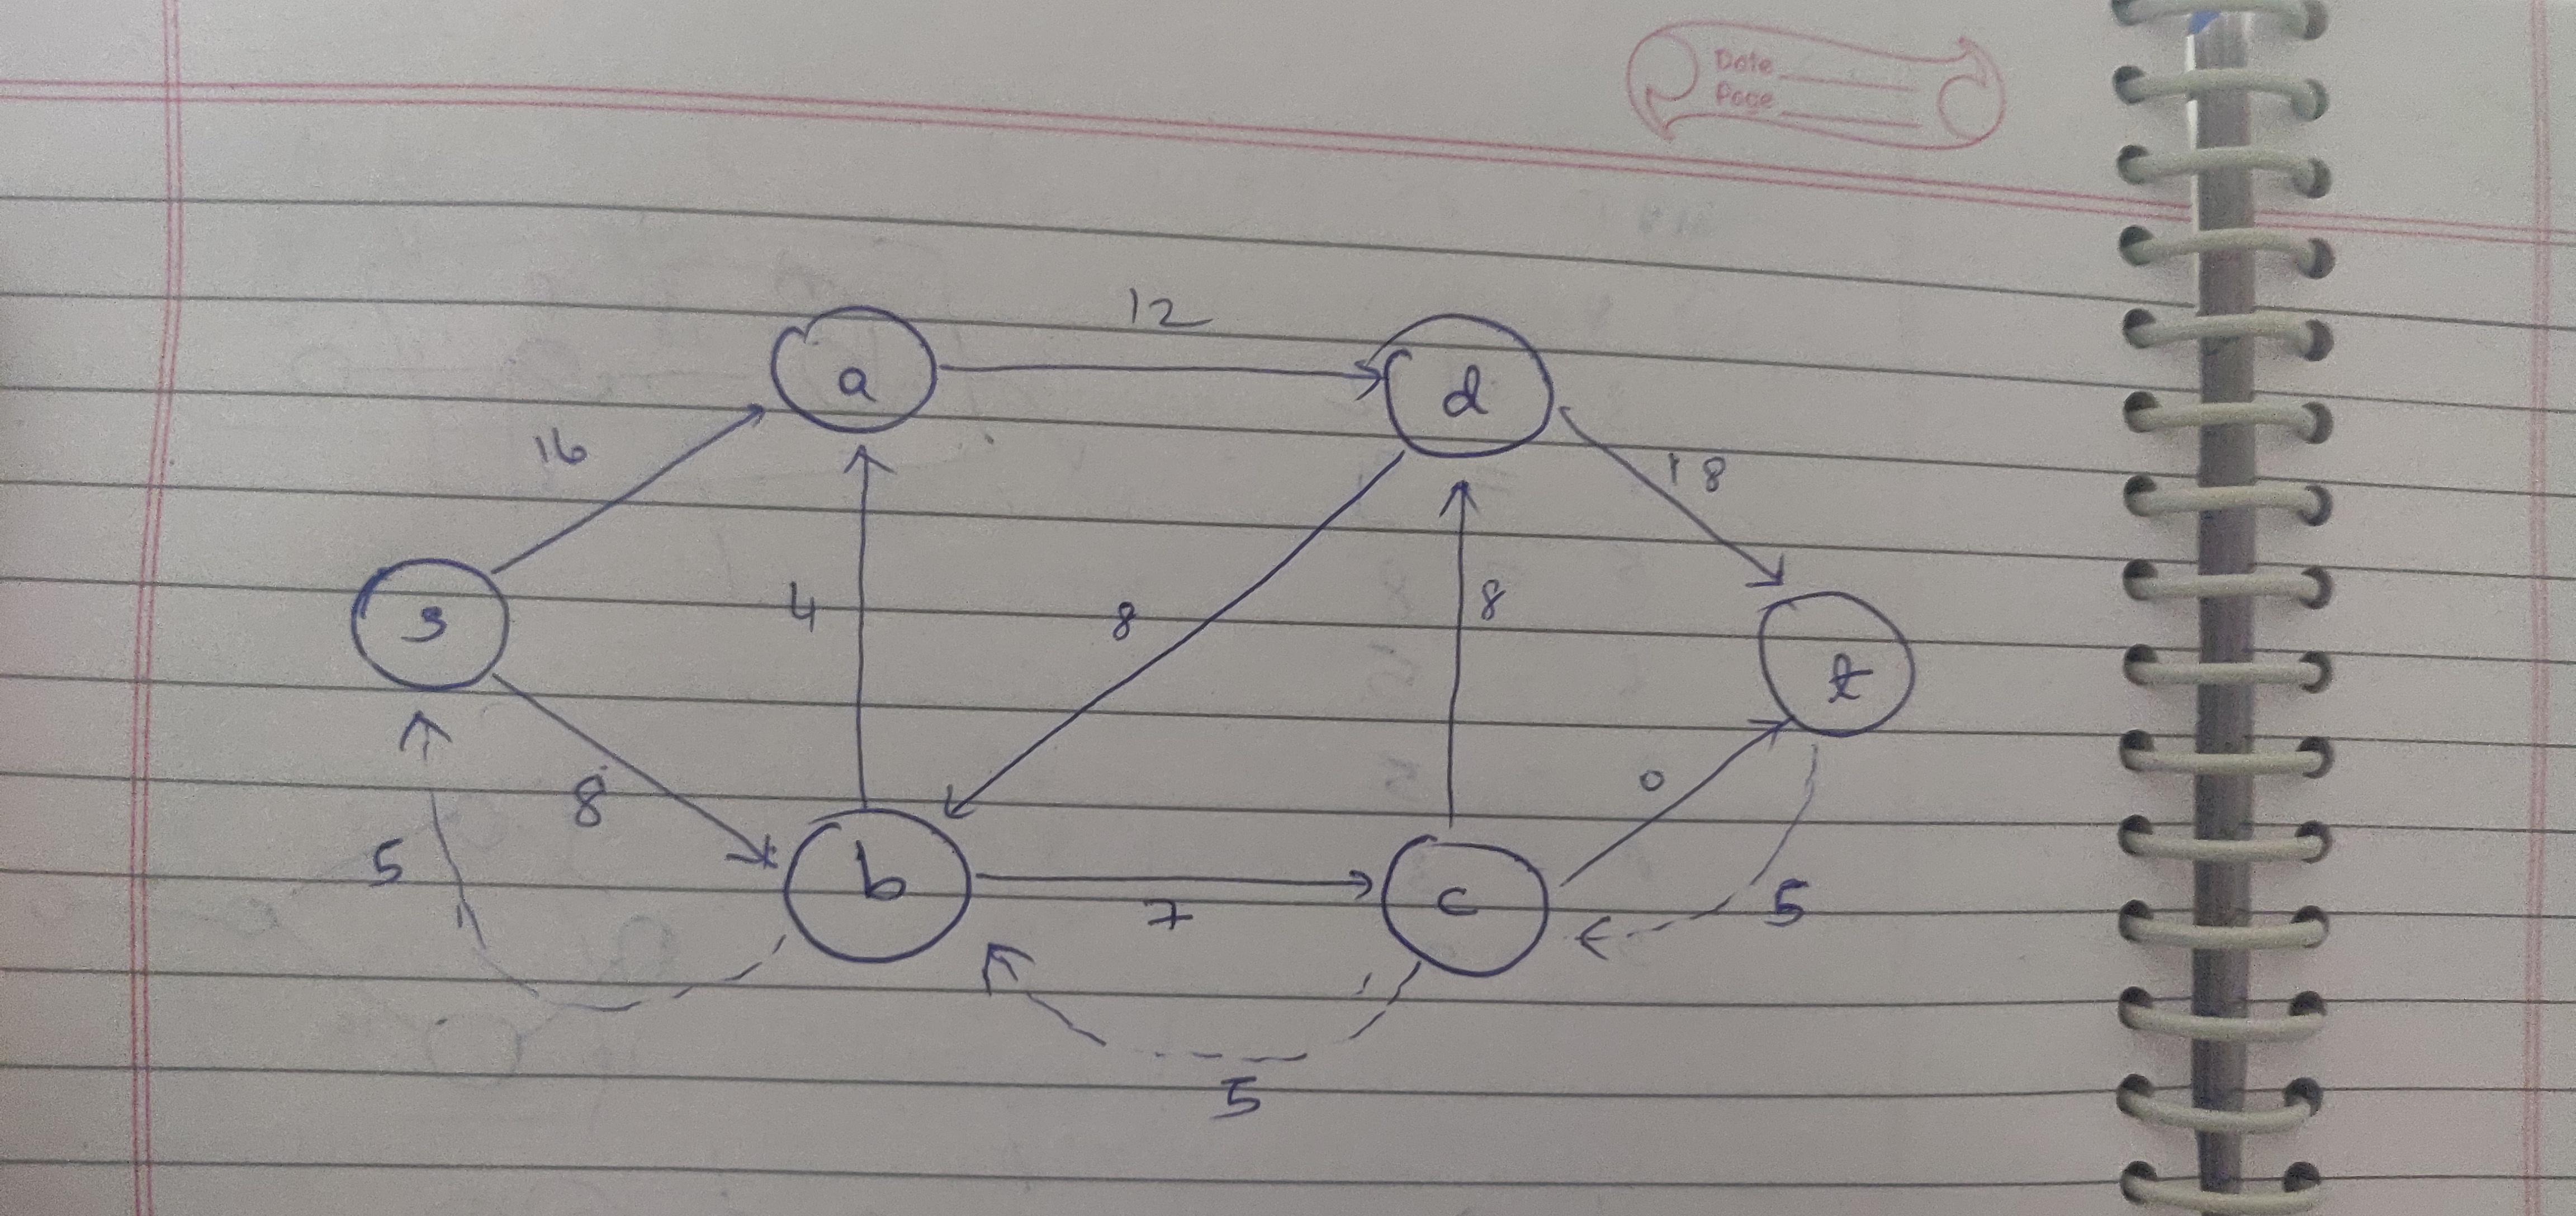 Date
Page
12
a
d
16
18
s
4
8
8
t
8
0
5
b
c
5
7
5